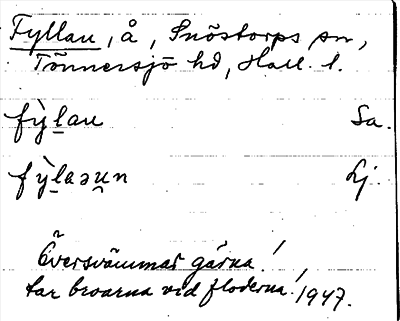 Fyllan, å, Snöstorps sn,
Tönnersjö hd, Hall. l.
fỳḻau Sa.
fỳḻaəṳn Lj.
Översvämmar gärna!
tar broarna vid floderna! 1947.